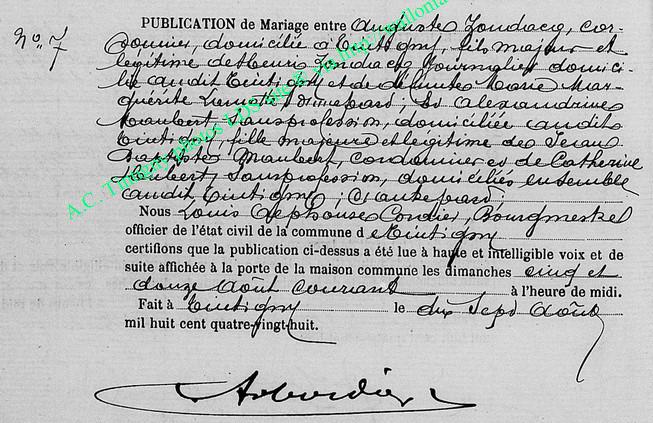 No. 7
PUBLICATION de Mariage entre Auguste Zondacq, cor-
donnier, domicilié à Tintigny, fils majeur et
légitime de Henri Zondacq journalier domici-
lié audit Tintigny et de défunte Marie Mar-
guérite d'une part; Et Alexandrine
Maubert, sans profession, domiciliée audit
Tintigny, fille majeure et légitime de Jean
Baptiste Maubert, cordonnier et de Catherine
Hubert, sans profession, domiciliés ensemble
audit Tintigny, d'autre part;
Nous Louis Alphonse Cordier, Bourgmestre
officier de l'état civil de la commune d e Tintigny
certifions que la publication ci-dessus a été lue à haute et intelligible voix et de
suite affichée à la porte de la maison commune les dimanches cinq et
douze Août courant à l'heure de midi.
Fait à Tintigny le dix Sept Août
mil huit cent quatre-vingt-huit.
A.C. Tintigny photos LDS